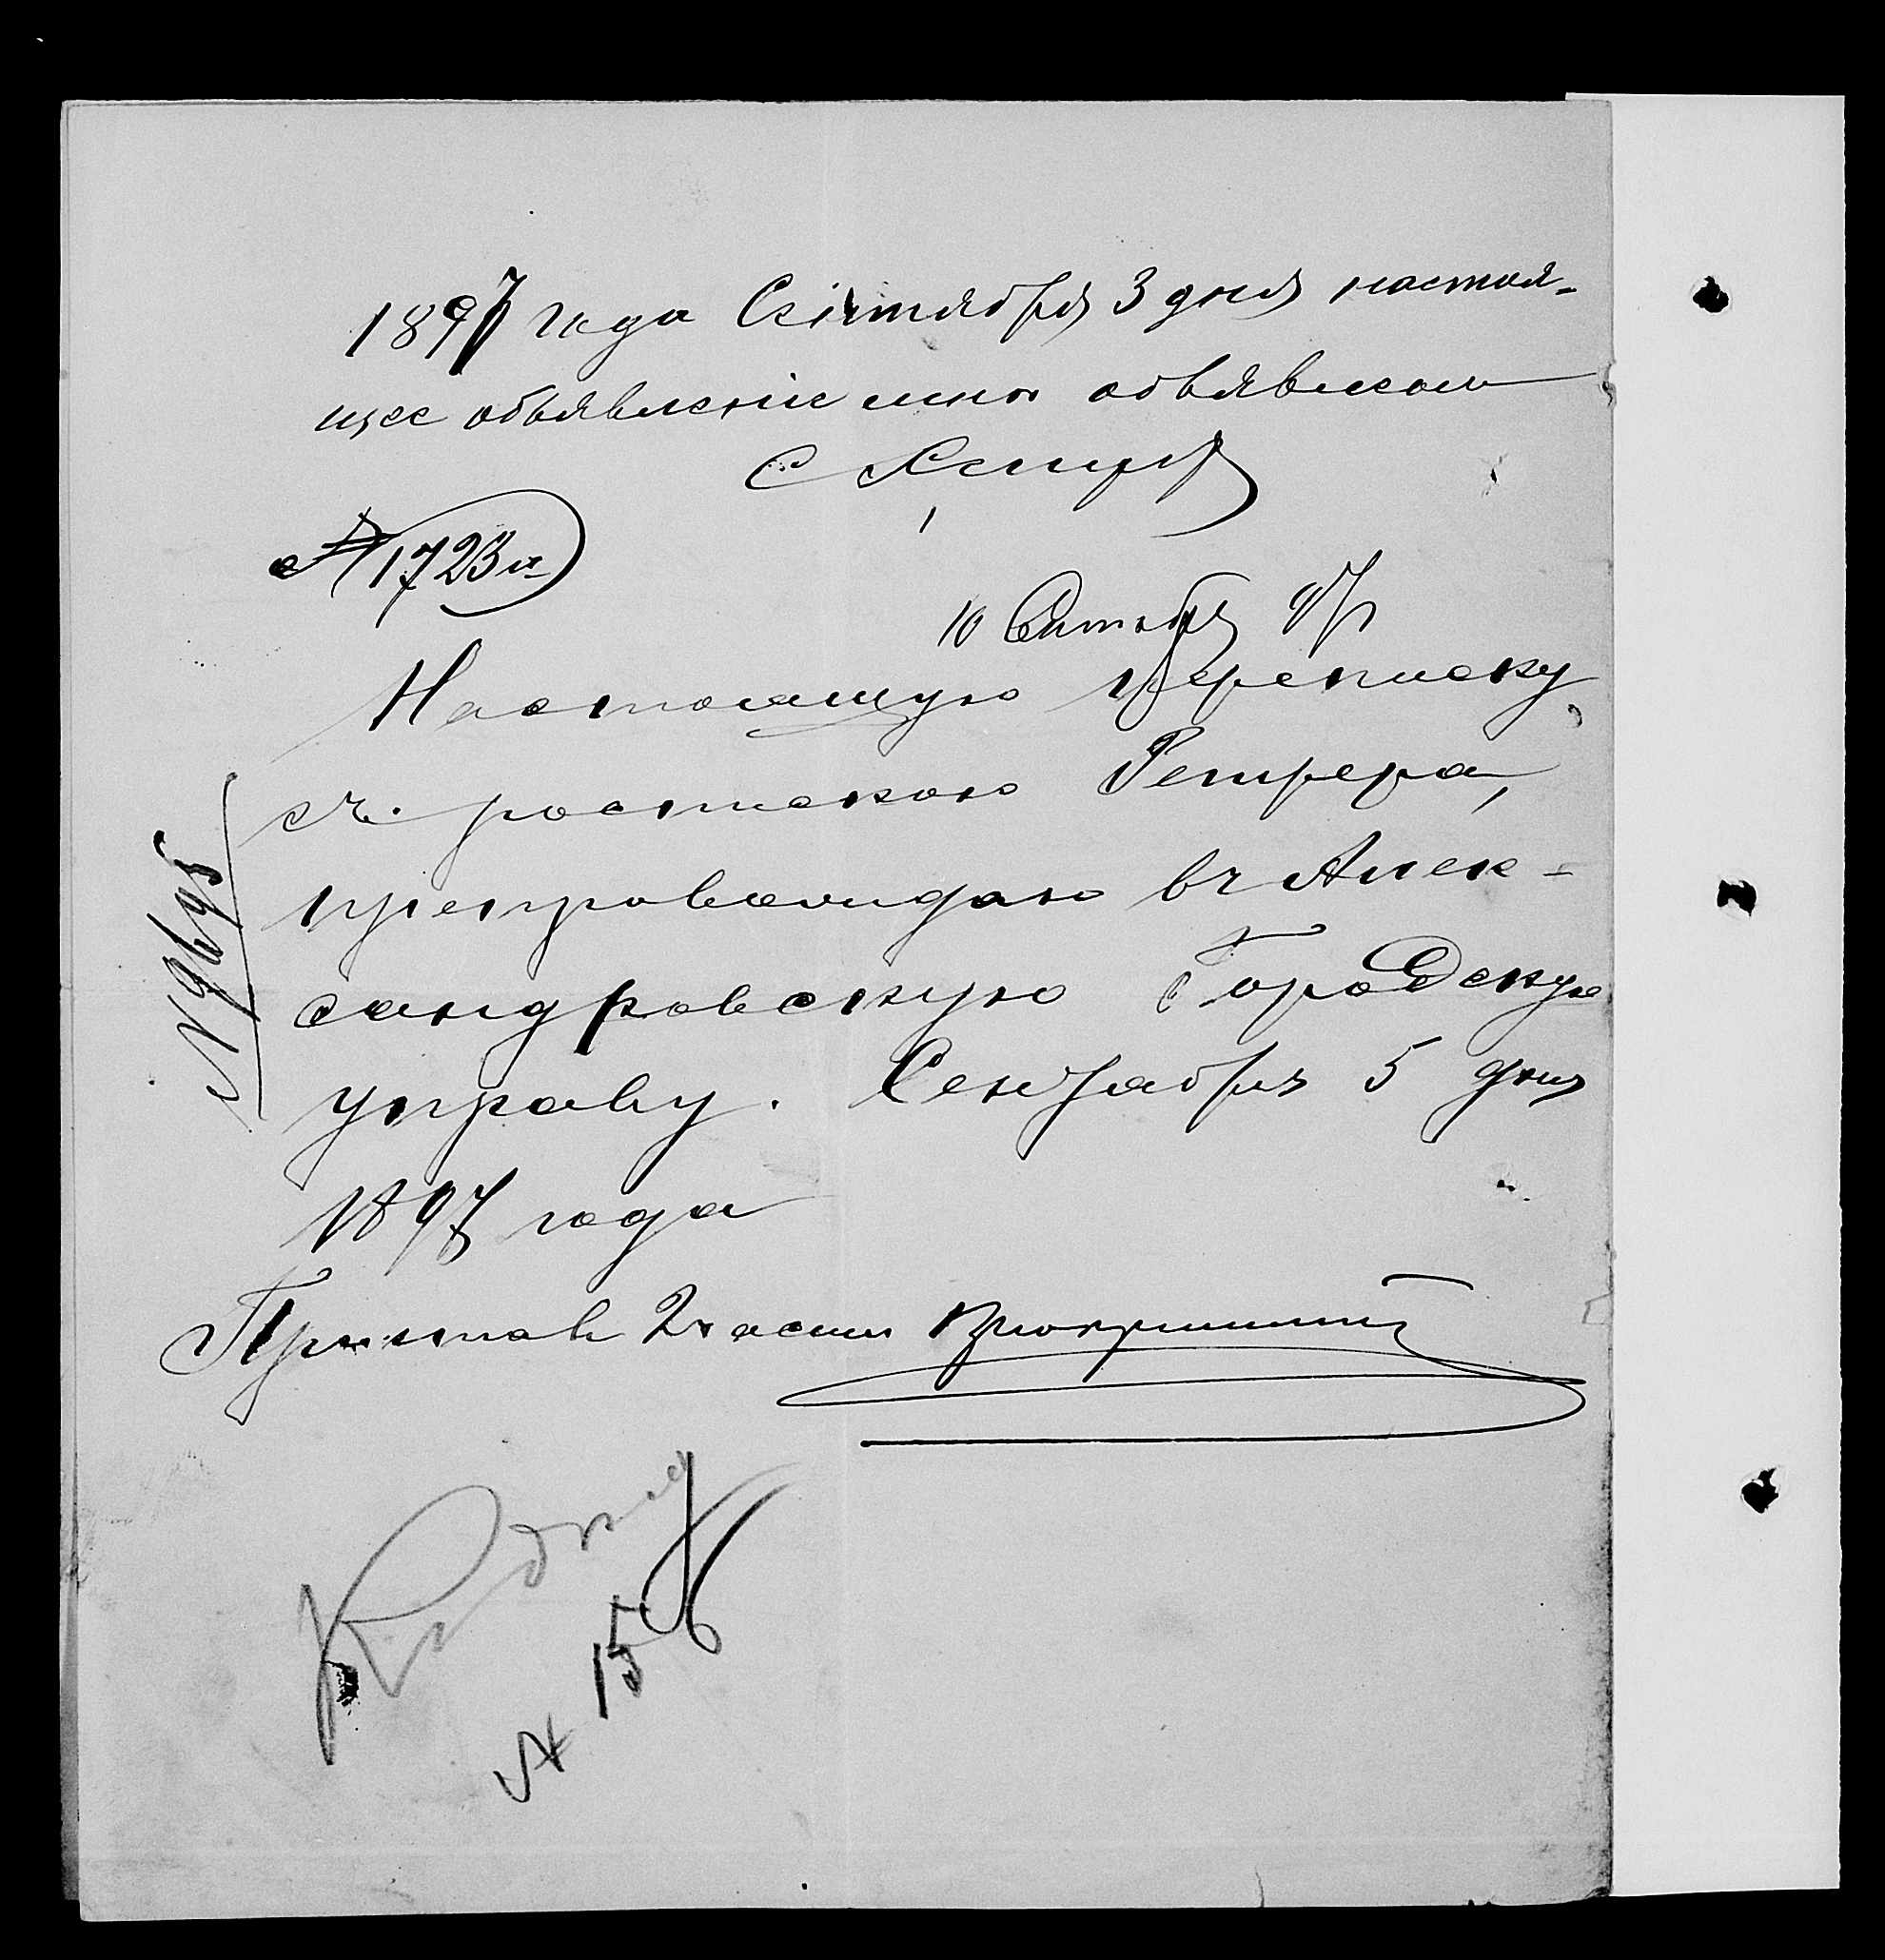 1897 года Сентября 3 дня настоя-
щее объявленіе мнѣ объявлено
№ 1723
10 Сентября 97
Настоящую переписку
съ роспискою Ремпера,
препровождаю въ Алек-
сандровскую Городскую
управу. Сентября 5 дня
1897 года
Приставъ 2 части
№ 9695
К дѣлу
№ 15